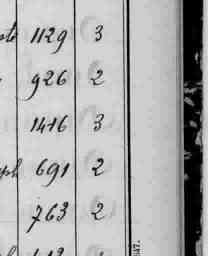 1129 3
926 2
1416 3
691 2
763 2